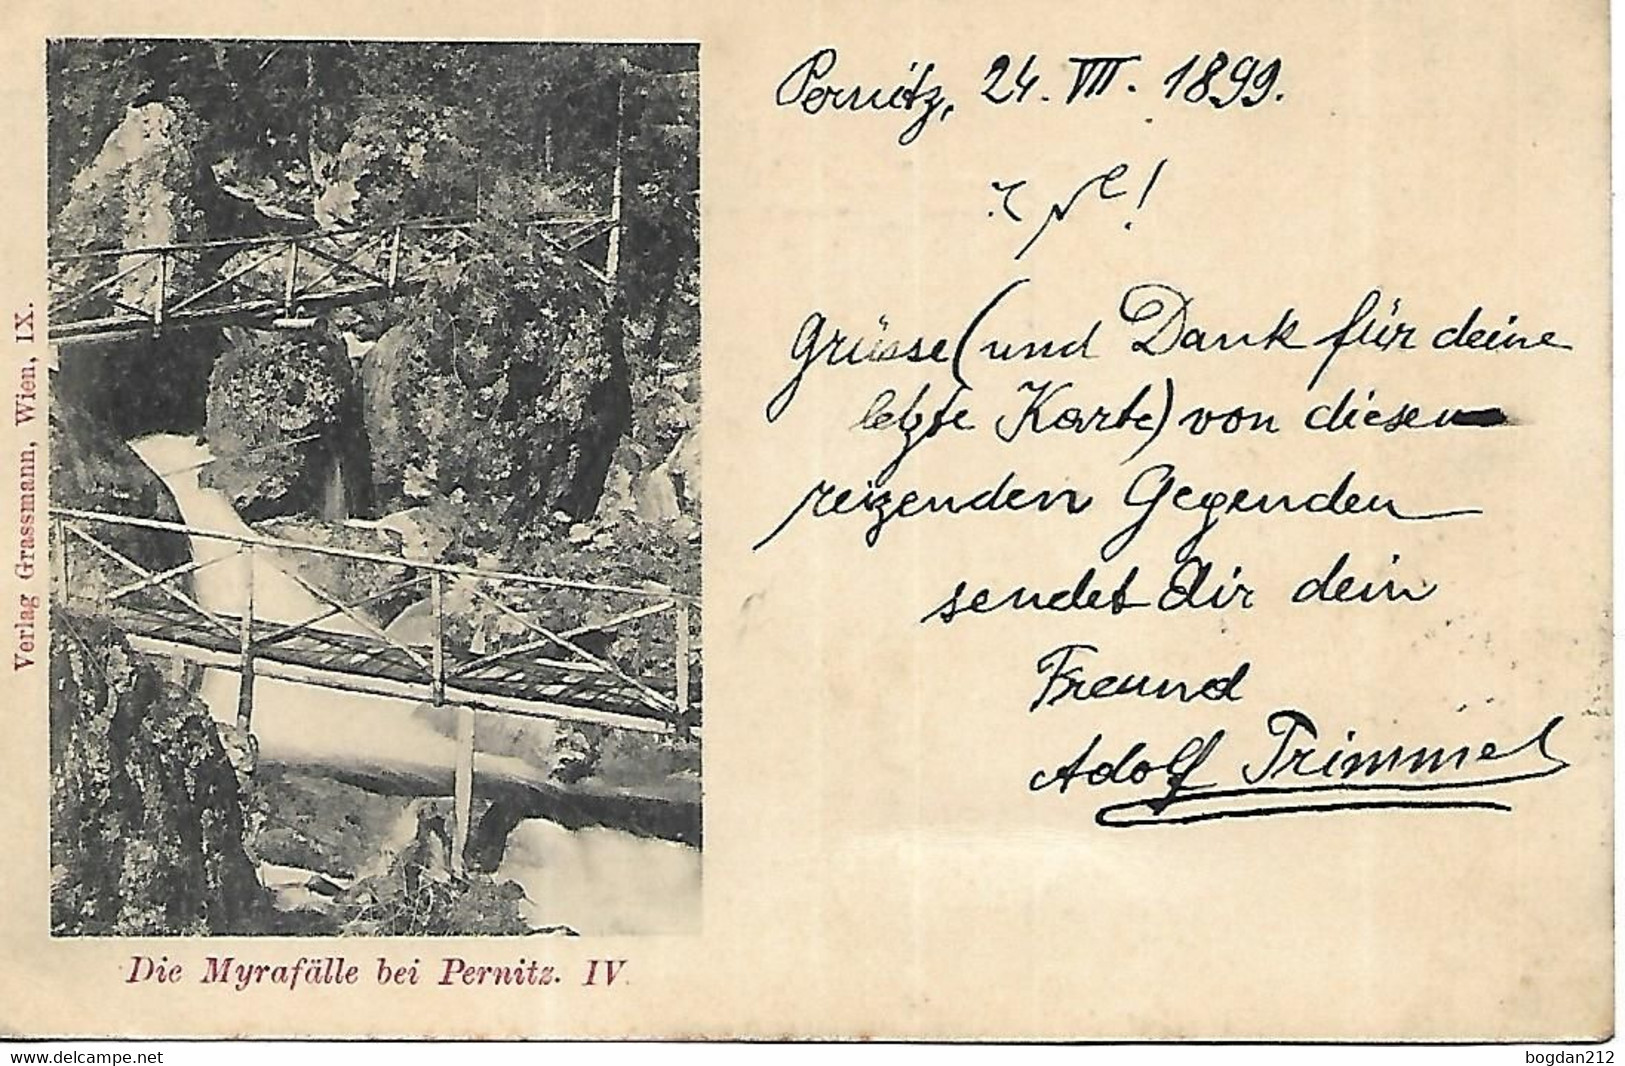 Pernitz, 24. VII. 1899.
Grüsse (und Dank für deine
letzte Karte) von diesen
reizenden Gegenden
sendet dir dein
Freund
Adolf Trimmel
Verlag Grassmann, Wien, IX.
Die Myrafälle bei Pernitz. IV.
www.delcampe.net
bogdan212